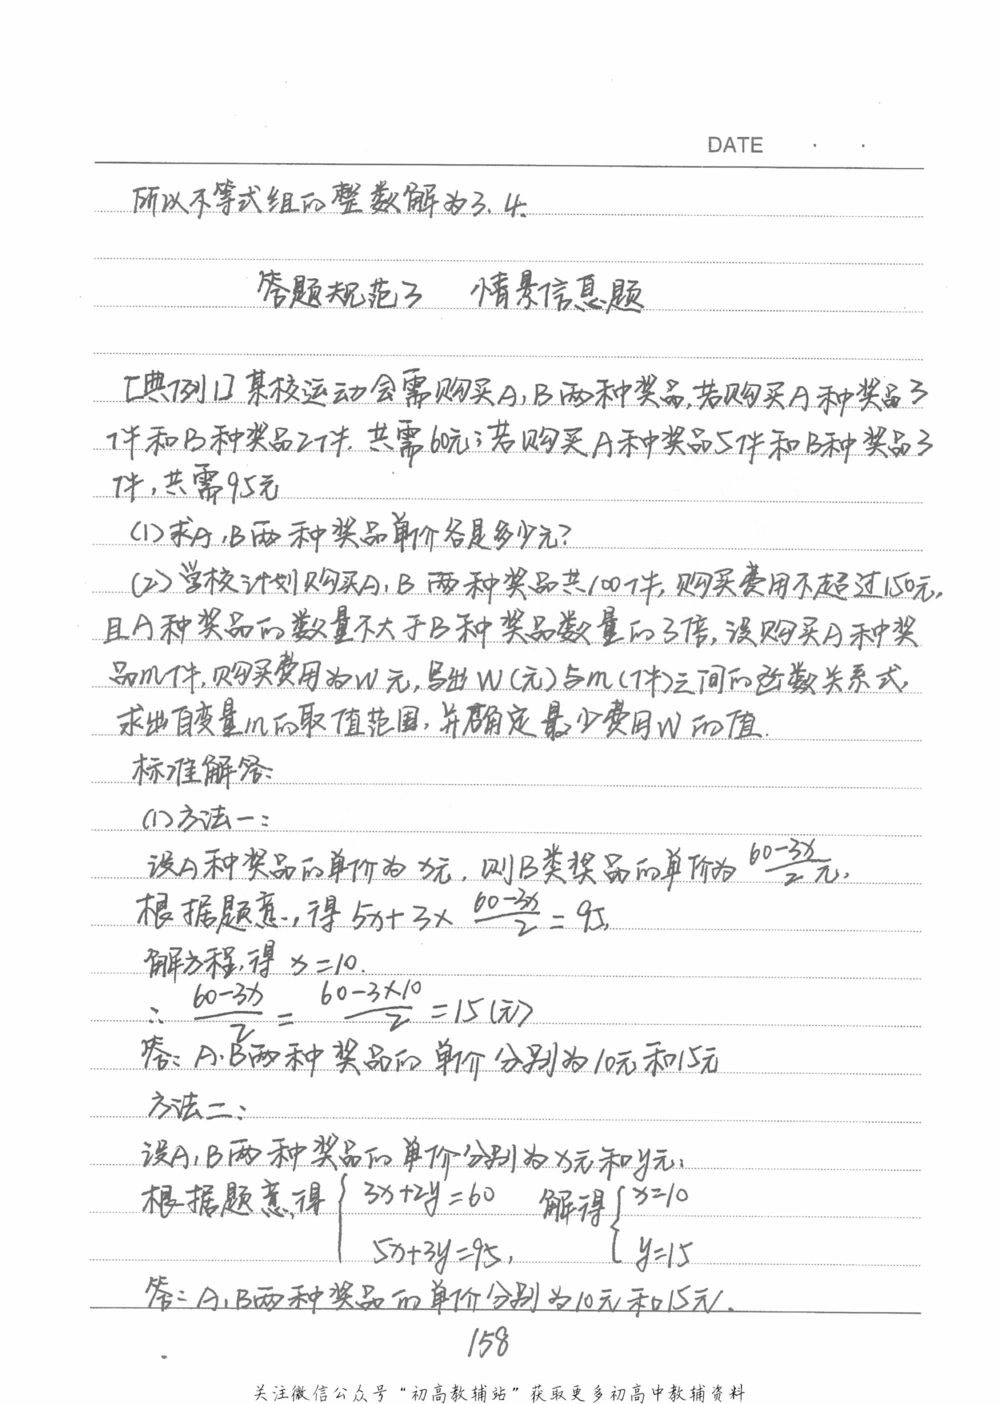 DATE · ·
所以不等式组的整数解为3、4.
答题规范3 情景信息题
[典例1]某校运动会需购买A,B两种奖品,若购买A种奖品3
件和B种奖品2件.共需60元;若购买A种奖品5件和B种奖品3
件,共需95元
(1)求A,B两种奖品单价各是多少元?
(2)学校计划购买A,B两种奖品共100件,购买费用不超过1150元,
且A种奖品的数量不大于B种奖品数量的3倍,设购买A种奖
品m件,购买费用为W元,写出W(元)与m(件)之间的函数关系式,
求出自变量m的取值范围,并确定最少费用W的值.
标准解答:
(1)方法一:
设A种奖品的单价为x元,则B类奖品的单价为\frac{60-3x}{2}元,
根据题意,得5x+3×\frac{60-3x}{2}=95,
解方程,得 x=10.
∴ \frac{60-3x}{2}=\frac{60-3×10}{2}=15(元)
答:A,B两种奖品的单价分别为10元和15元
方法二:
设A,B两种奖品的单价分别为x元和y元,
根据题意,得 { 3x+2y=60 解得 { x=10
5x+3y=95, y=15
答:A,B两种奖品的单价分别为10元和15元.
158
关注微信公众号“初高教辅站”获取更多初高中教辅资料